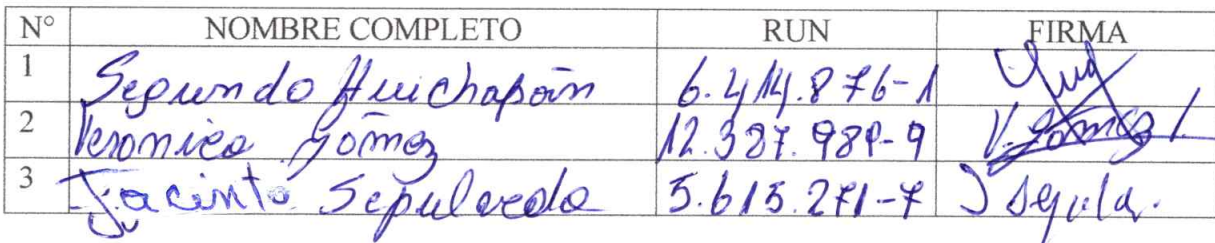 N° NOMBRE COMPLETO RUN FIRMA
1 Segundo Huichapán 6.414.876-1
2 Veronica Gómez 12.387.989-9 V. Gómez
3 Jacinto Sepulveda 5.615.271-7 J Sepula.